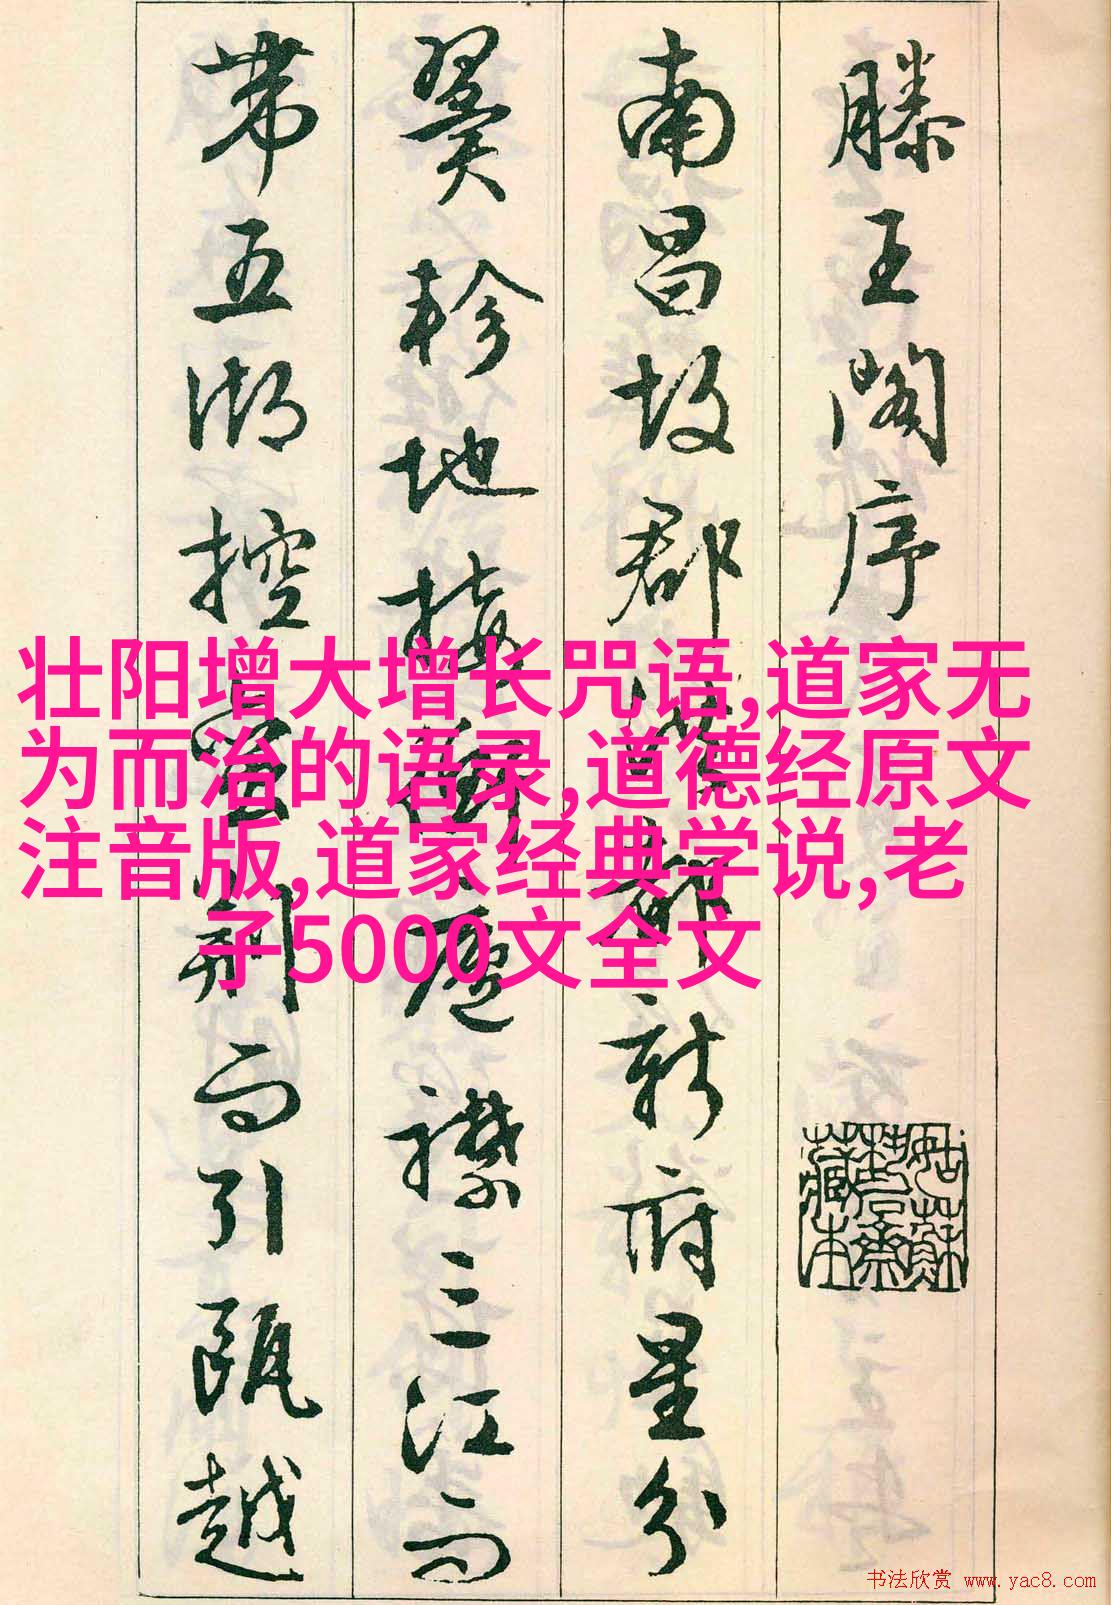 滕王閣序
南昌故郡洪都新府星分
翼軫地接衡廬襟三江而
帶五湖控蠻荆而引甌越
壮阳增大增长咒语,道家无
为而治的语录,道德经原文
注音版,道家经典学说,老
子5000文全文
书法欣赏 www.yac8.com